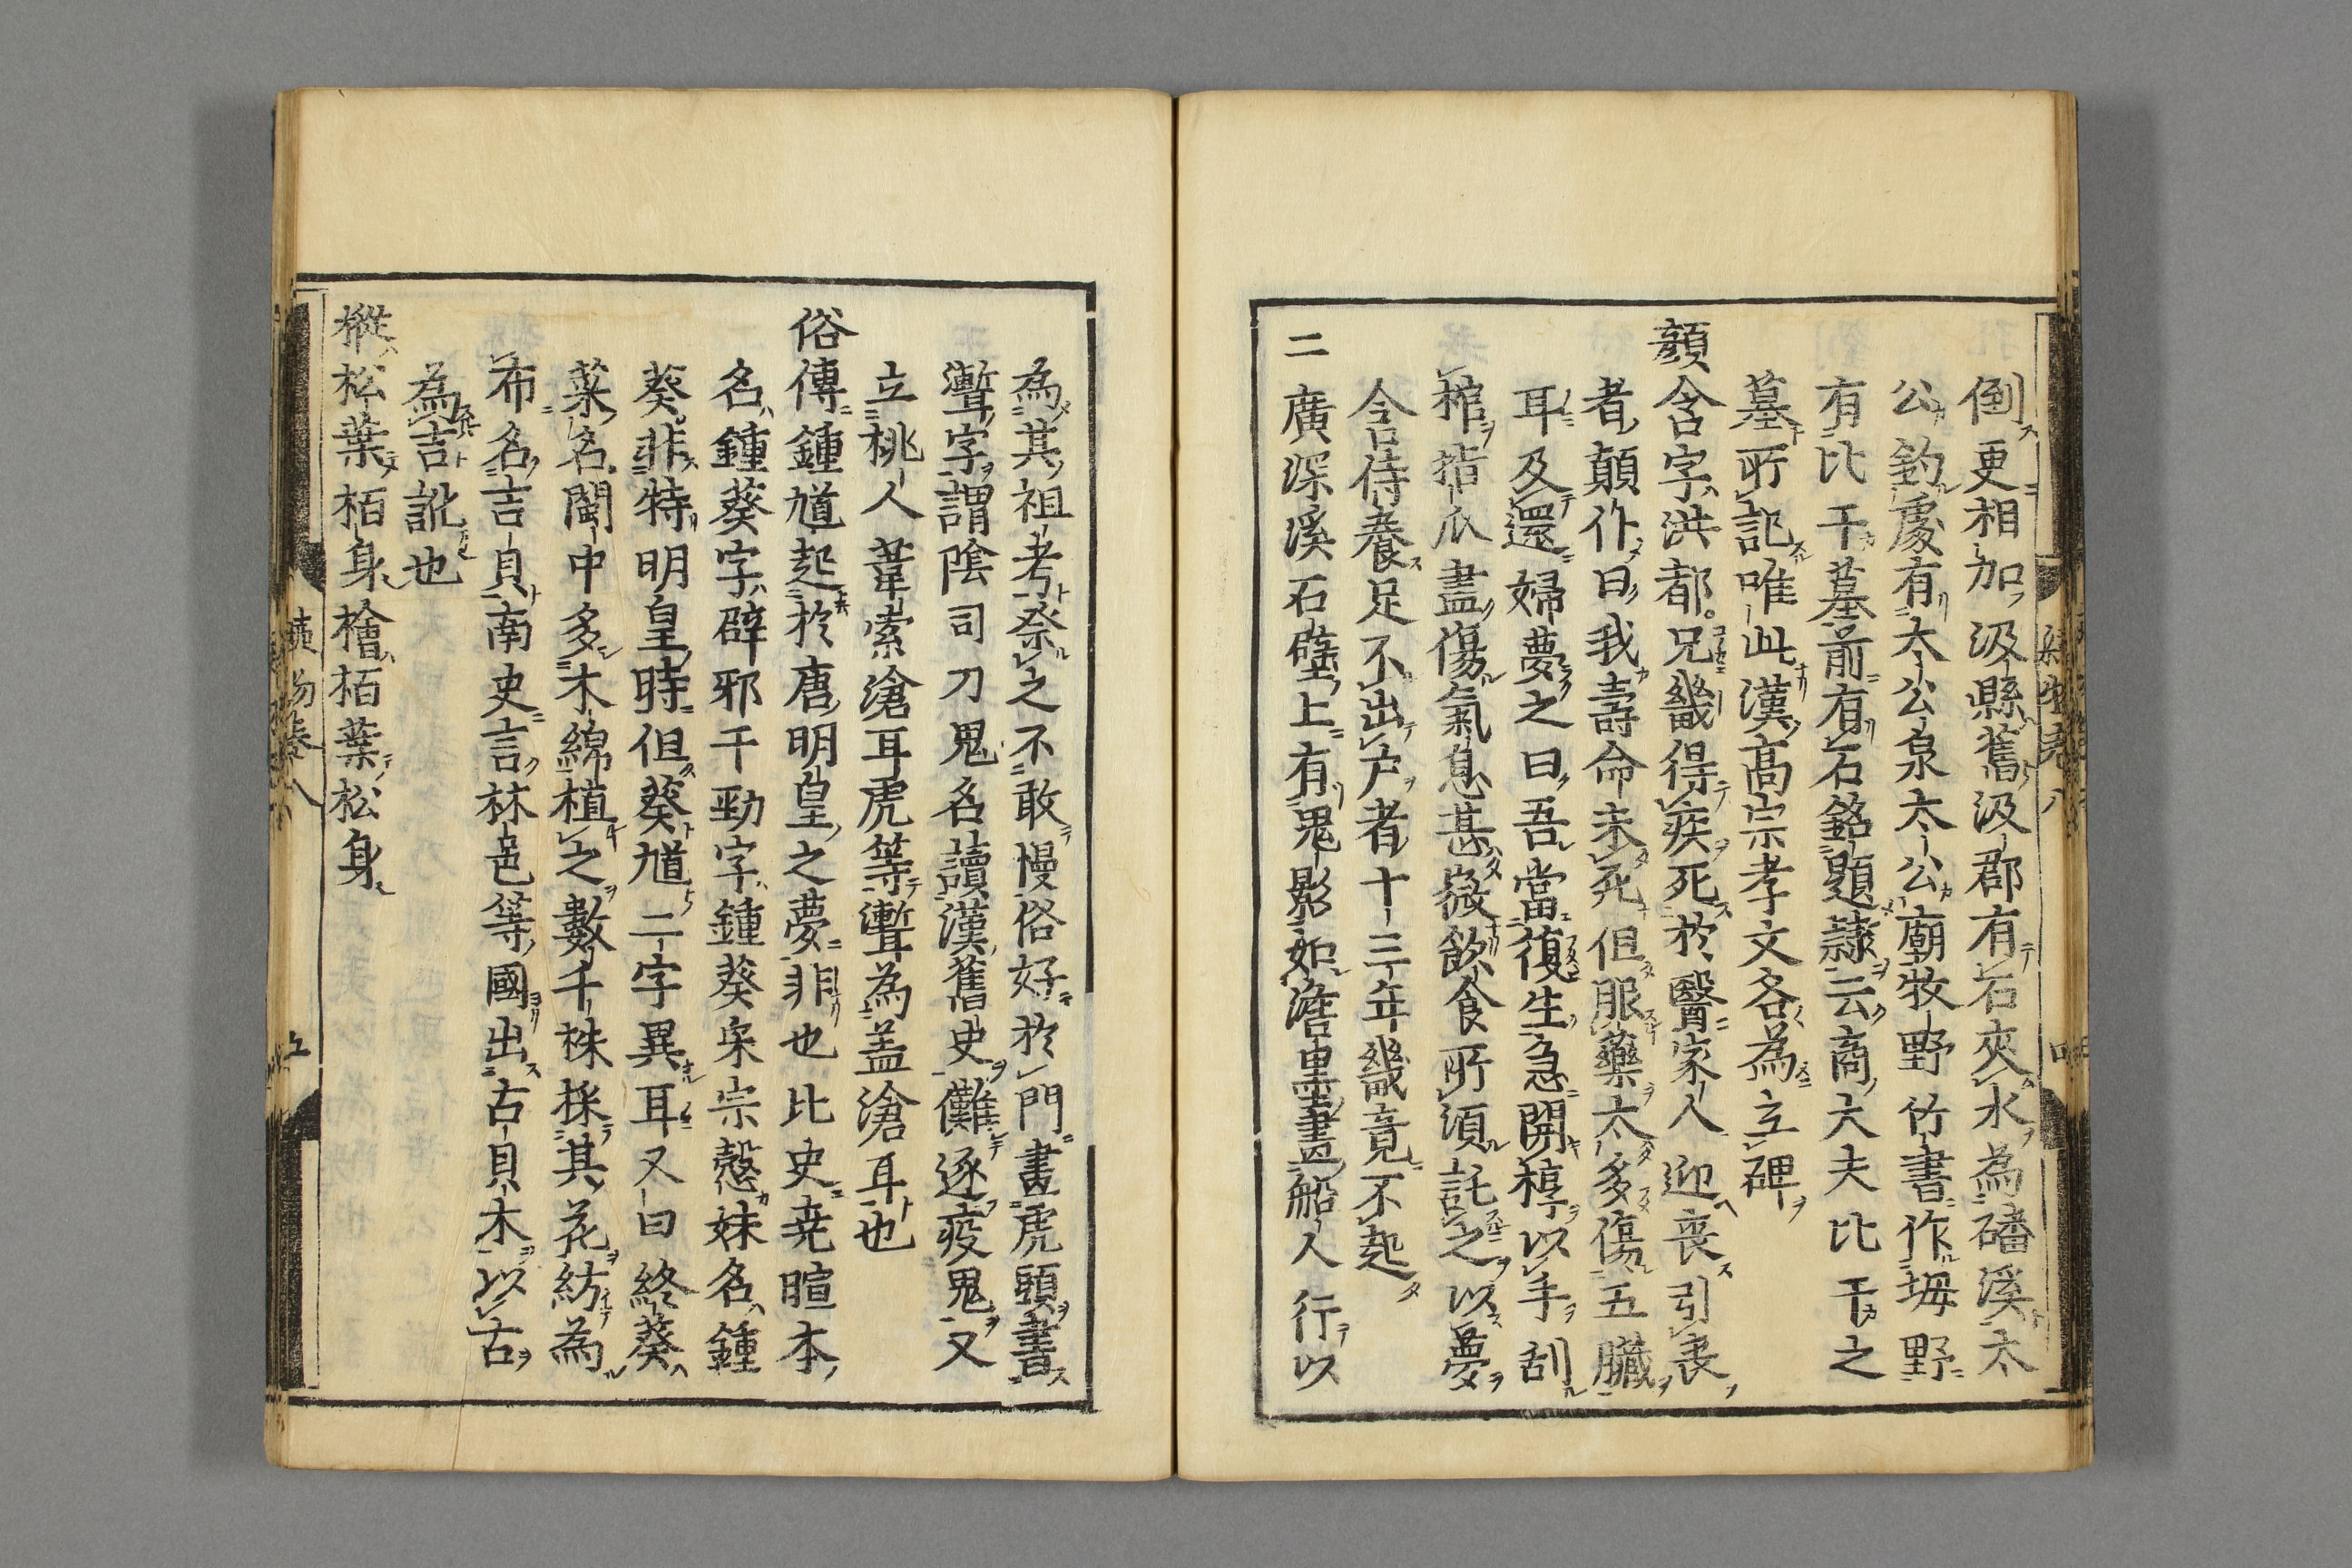 倒更相加汲縣舊汲郡有石夾水為磻溪太
公釣處有太公泉太公廟牧野竹書作坶野
有比干墓前有石銘題隷云商大夫比干之
墓所記唯此漢高宗孝文各為立碑
顏含字洪都兄畿得疾死於醫家人迎喪引喪
者顛仆曰我壽命未死但服藥太多傷五臟
耳及還婦夢之曰吾當復生急開椁以手刮
棺指爪盡傷氣息甚微飲食所須託之以夢
含侍養足不出戶者十三年畿竟不起
二廣深溪石壁上有鬼影如澹墨畫船人行以
為其祖考祭之不敢慢俗好於門畫虎頭書
聻字謂陰司刀鬼名讀漢舊史儺逐疫鬼又
立桃人葦索滄耳虎等聻為盖滄耳也
俗傳鍾馗起於唐明皇之夢非也比史堯暄本
名鍾葵字辟邪于勁字鍾葵宋宗愨妹名鍾
葵非特明皇時但葵馗二字異耳又曰終葵
菜名閩中多木綿植之數千株採其花紡為
布名吉貝南史言林邑等國出古貝木以古
為吉訛也
樅松葉栢身檜栢葉松身